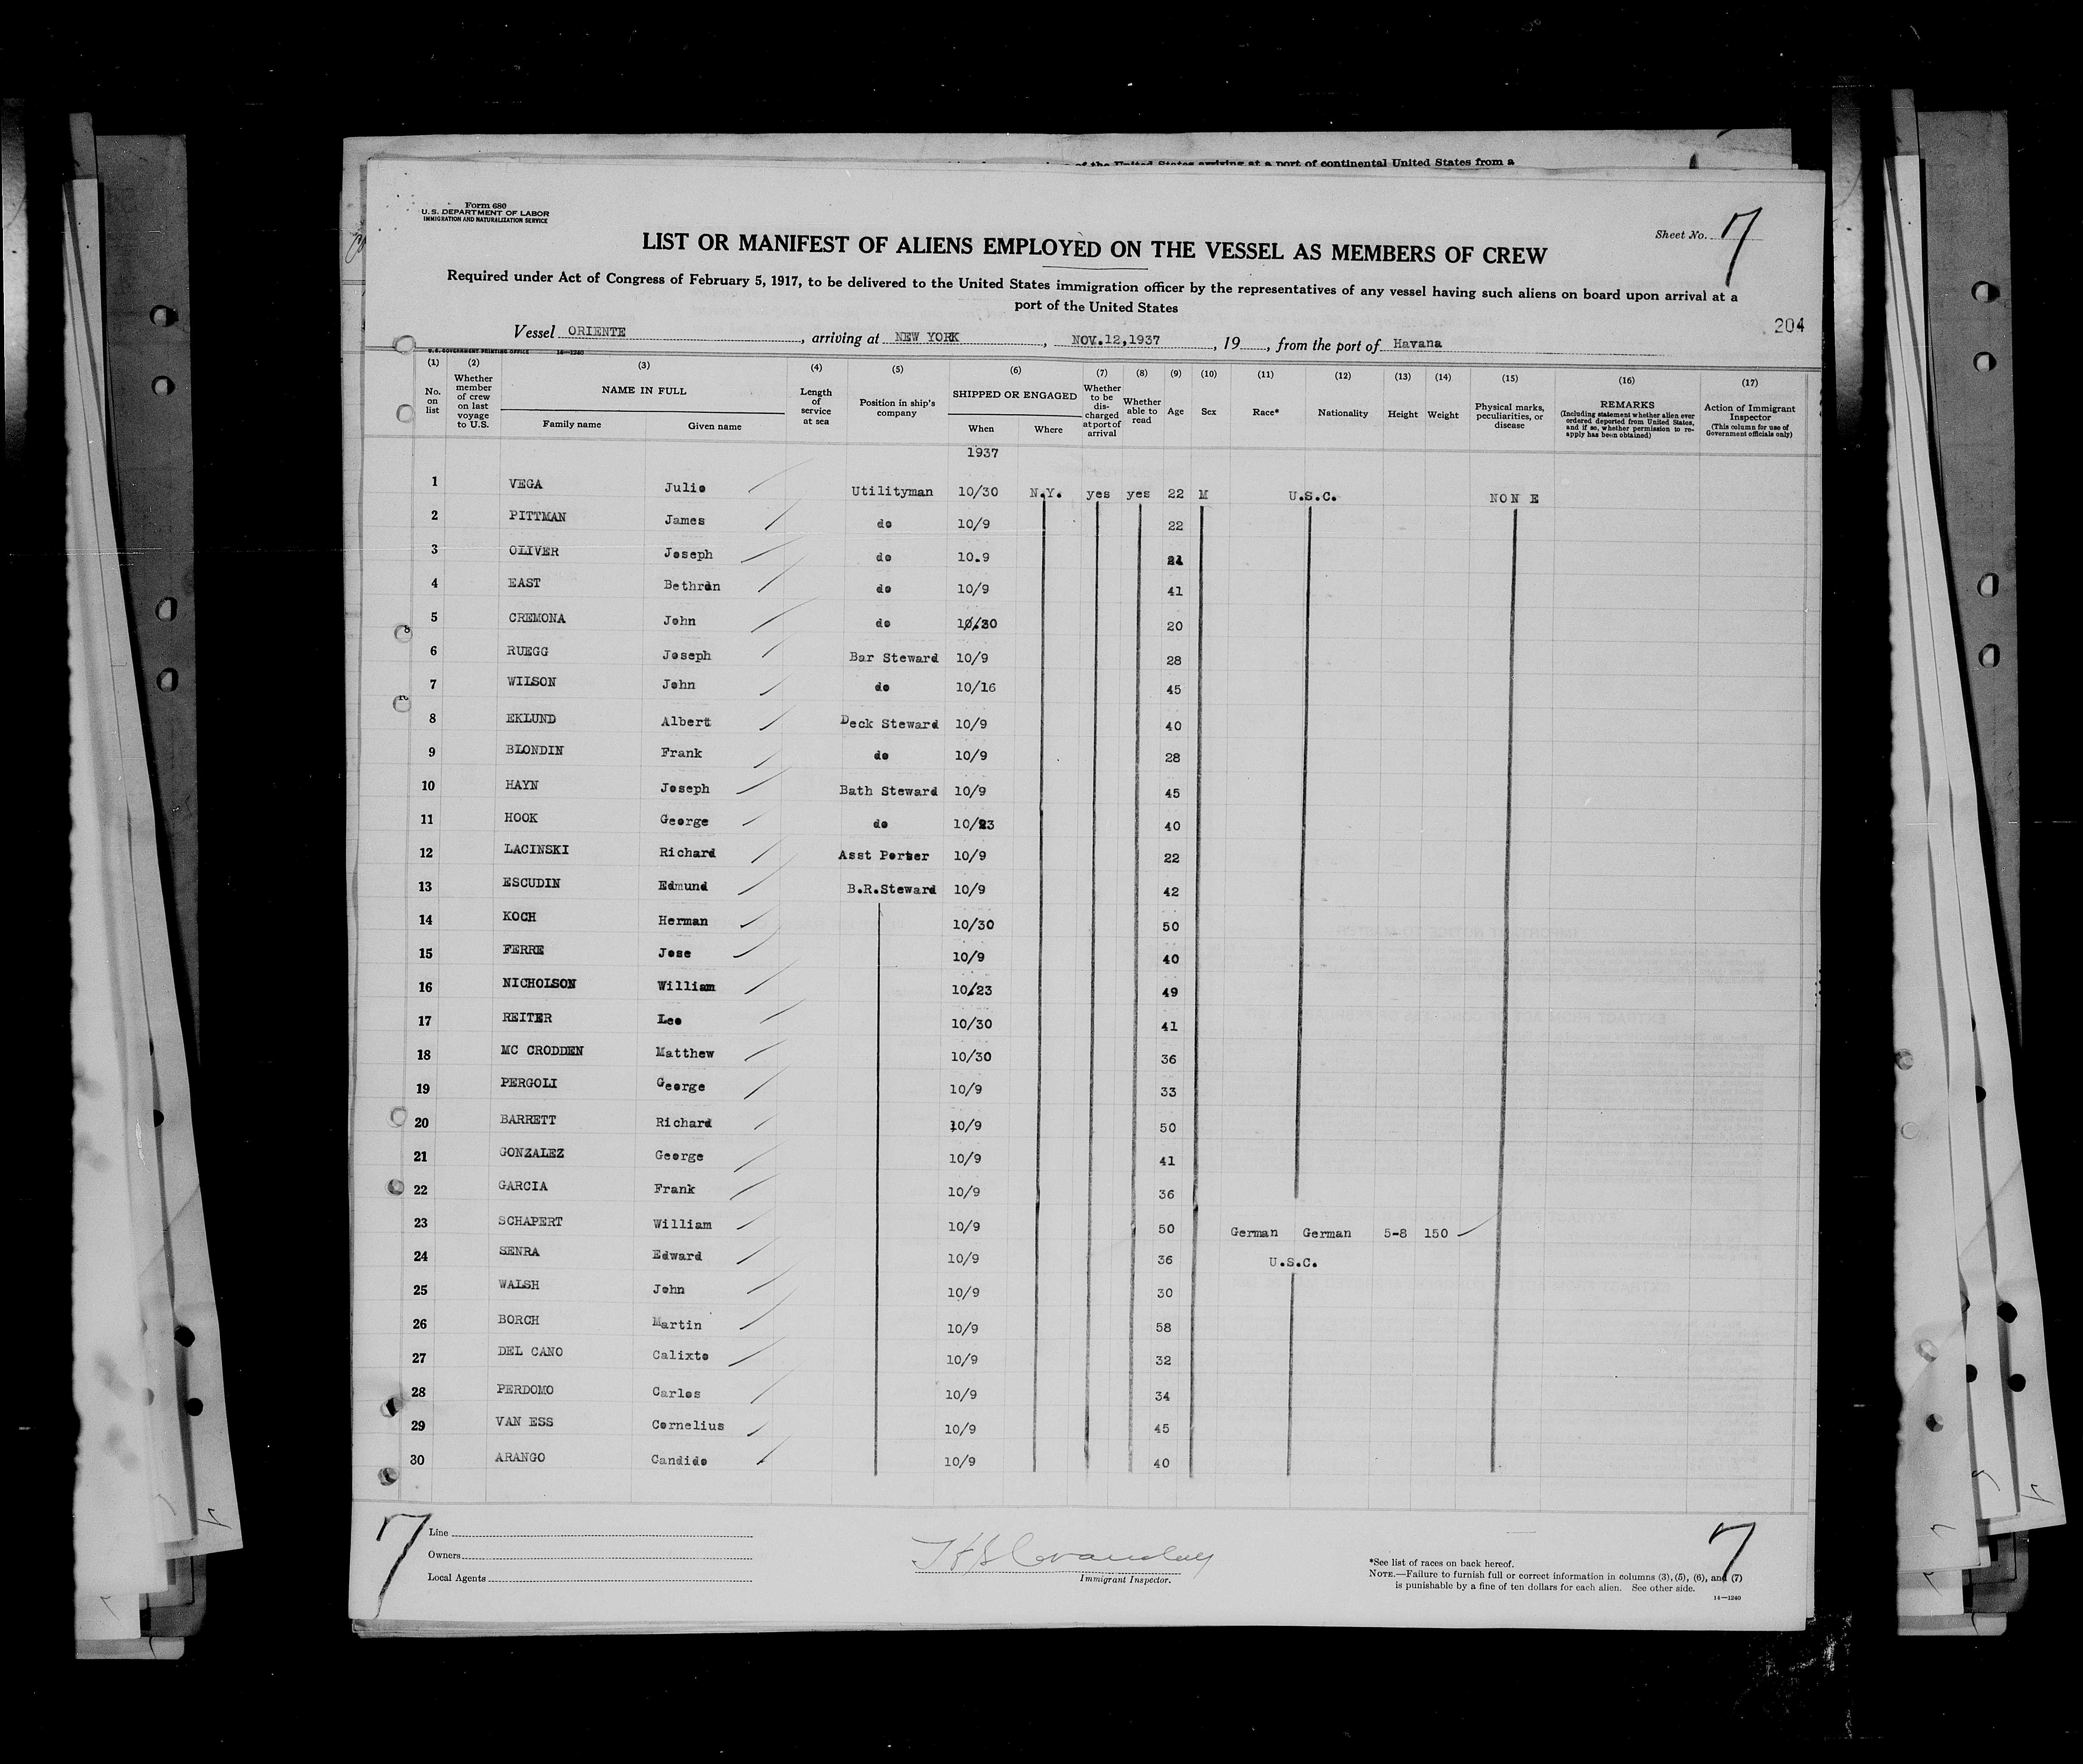 of the United States arriving at a port of continental United States from a
Form 680
U.S. DEPARTMENT OF LABOR
IMMIGRATION AND NATURALIZATION SERVICE
Sheet No. 7
LIST OR MANIFEST OF ALIENS EMPLOYED ON THE VESSEL AS MEMBERS OF CREW
Required under Act of Congress of February 5, 1917, to be delivered to the United States immigration officer by the representatives of any vessel having such aliens on board upon arrival at a
port of the United States
204
Vessel ORIENTE, arriving at NEW YORK, NOV.12,1937, 19, from the port of Havana
U.S. GOVERNMENT PRINTING OFFICE 14—1240
(1) (2) (3) (4) (5) (6) (7) (8) (9) (10) (11) (12) (13) (14) (15) (16) (17)
No. on list
Whether member of crew on last voyage to U.S.
NAME IN FULL
Family name
Given name
Length of service at sea
Position in ship's company
SHIPPED OR ENGAGED
When
Where
Whether to be discharged at port of arrival
Whether able to read
Age
Sex
Race*
Nationality
Height
Weight
Physical marks, peculiarities, or disease
REMARKS
(Including statement whether alien ever ordered deported from United States, and if so, whether permission to reapply has been obtained)
Action of Immigrant Inspector
(This column for use of Government officials only)
1937
1 VEGA Julio Utilityman 10/30 N.Y. yes yes 22 M U.S.C. NONE
2 PITTMAN James do 10/9 22
3 OLIVER Joseph do 10.9 21
4 EAST Bethran do 10/9 41
5 CREMONA John do 10/30 20
6 RUEGG Joseph Bar Steward 10/9 28
7 WILSON John do 10/16 45
8 EKLUND Albert Deck Steward 10/9 40
9 BLONDIN Frank do 10/9 28
10 HAYN Joseph Bath Steward 10/9 45
11 HOOK George do 10/23 40
12 LACINSKI Richard Asst Porter 10/9 22
13 ESCUDIN Edmund B.R.Steward 10/9 42
14 KOCH Herman 10/30 50
15 FERRE Jose 10/9 40
16 NICHOLSON William 10/23 49
17 REITER Leo 10/30 41
18 MC CRODDEN Matthew 10/30 36
19 PERGOLI George 10/9 33
20 BARRETT Richard 10/9 50
21 GONZALEZ George 10/9 41
22 GARCIA Frank 10/9 36
23 SCHAPERT William 10/9 50 German German 5-8 150
24 SENRA Edward 10/9 36 U.S.C.
25 WALSH John 10/9 30
26 BORCH Martin 10/9 58
27 DEL CANO Calixto 10/9 32
28 PERDOMO Carlos 10/9 34
29 VAN ESS Cornelius 10/9 45
30 ARANGO Candido 10/9 40
7
Line
Owners
Local Agents
Immigrant Inspector.
*See list of races on back hereof.
NOTE.—Failure to furnish full or correct information in columns (3), (5), (6), and (7)
is punishable by a fine of ten dollars for each alien. See other side.
14—1240
7